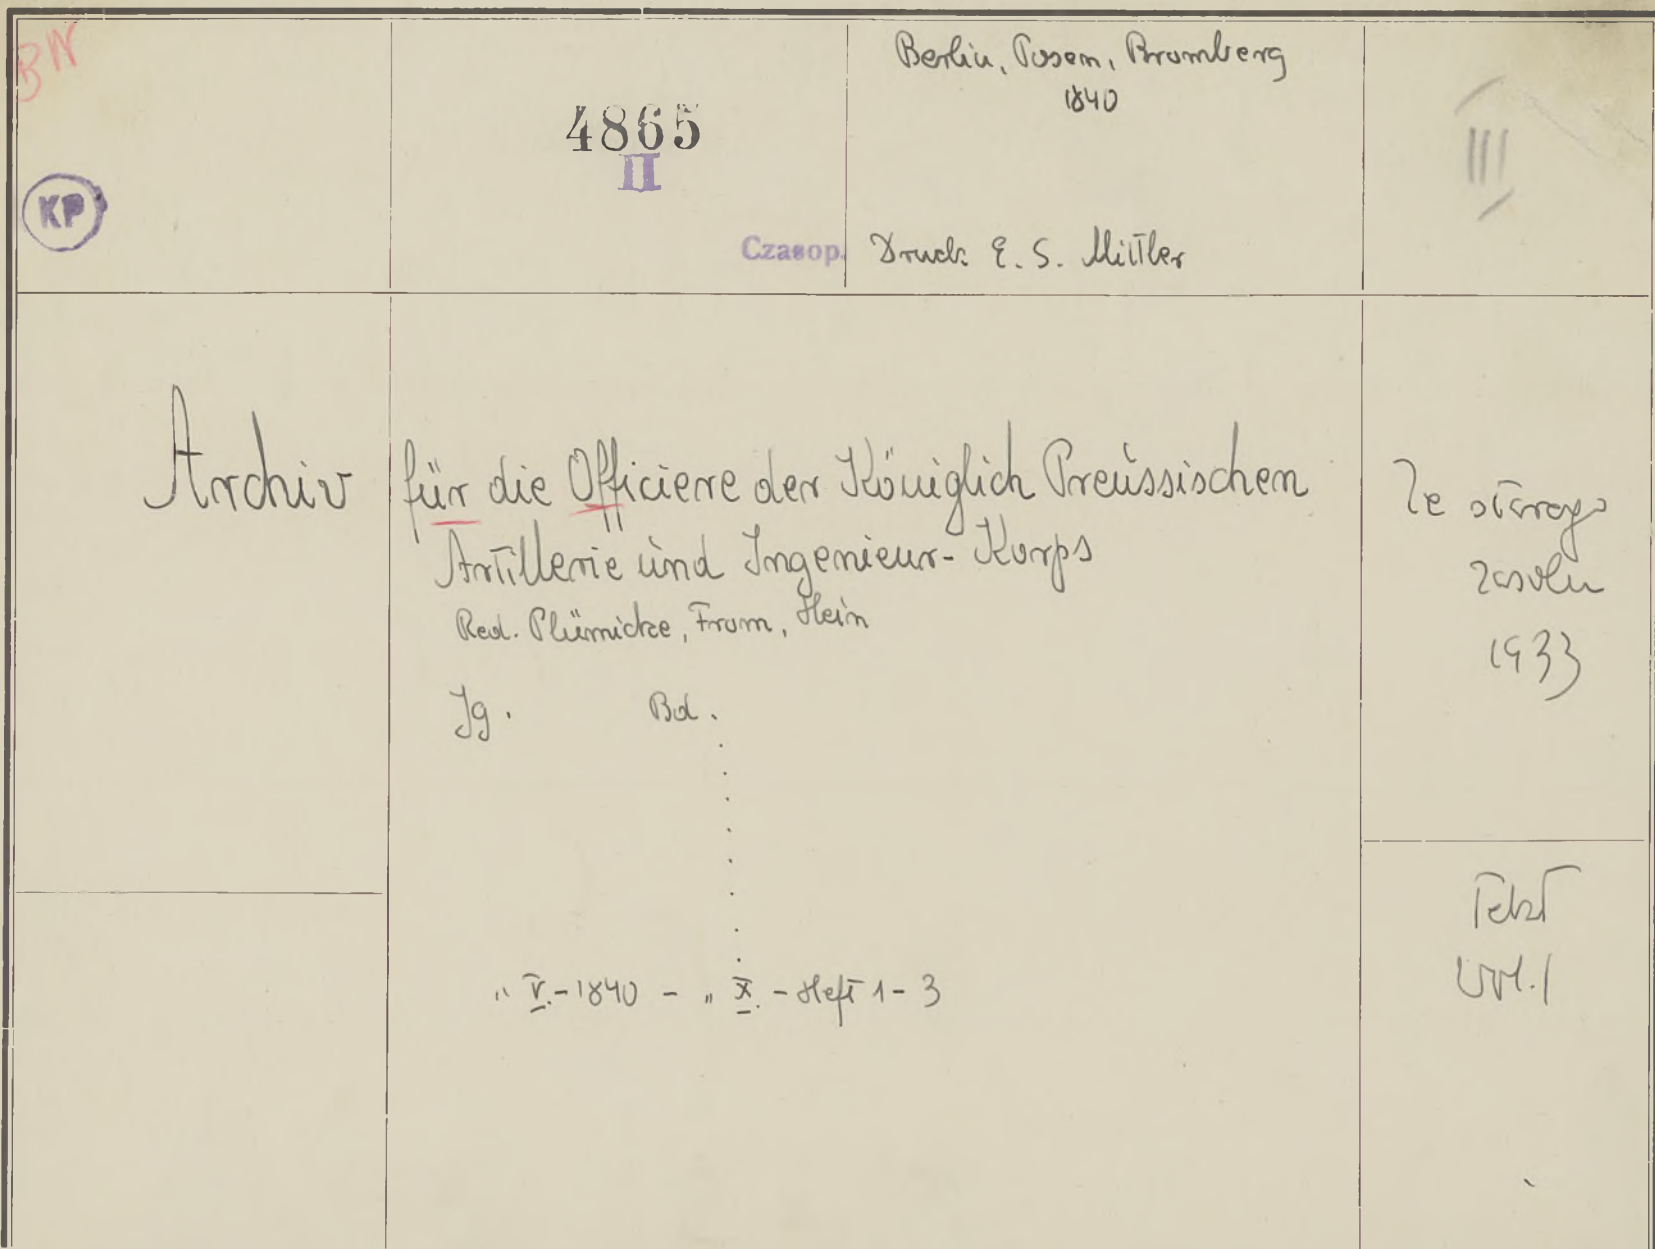 BN
KP
4865
II
Czasop.
Berlin, Posen, Bromberg
1840
Druck: E. S. Mittler
III
Archiv für die Officiere der Königlich Preüssischen
Artillerie ünd Ingenieur-Korps
Red. Plümicke, From, Hein
Jg. Bd.
" V. - 1840 - " X. - Heft 1 - 3
Ze starego
zasobu
1933
Tekst